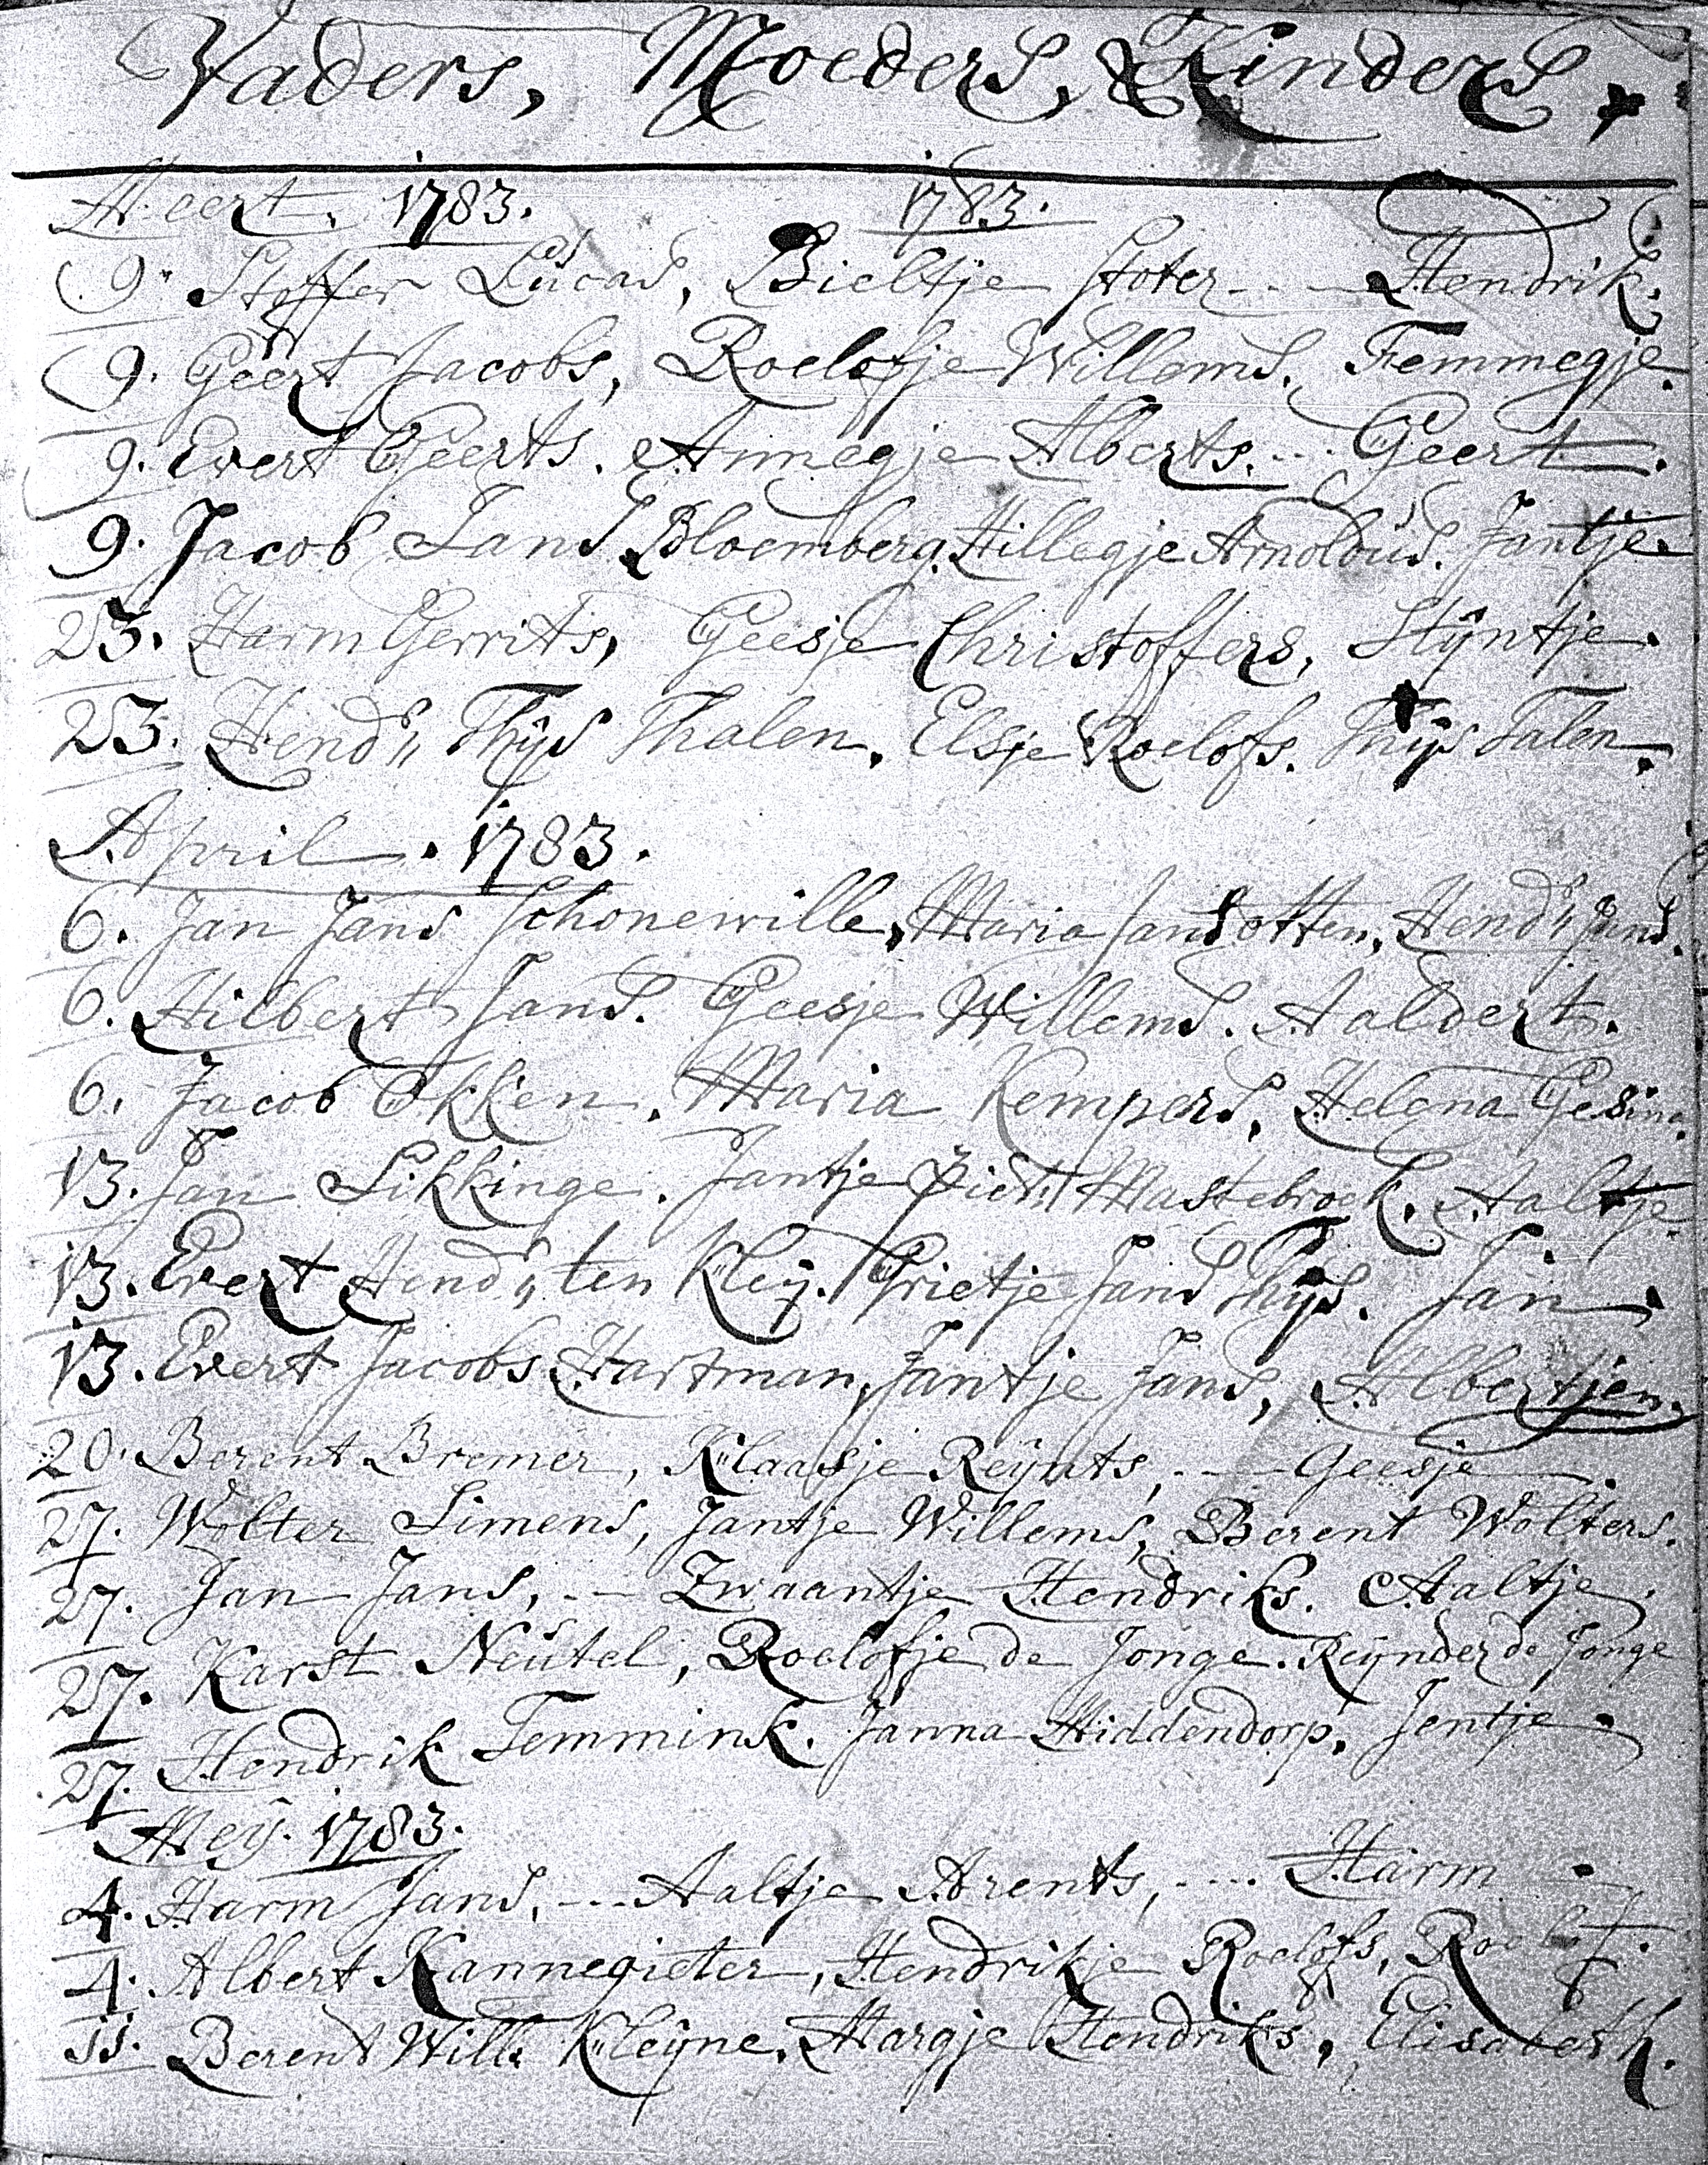 Vaders, Moeders, & Kinders.
Meert. 1783. 1783.
9. Stoffer Lucas, Bieltje Stoter --- Hendrik.
9. Geert Jacobs, Roelofje Willems. Femmegje.
9. Evert Geerts. Annegje Alberts. --- Geert.
9. Jacob Jans Bloemberg. Hillegje Arnoldus. Jantje.
23. Harm Gerrits, Geesje Christoffers, Stÿntje.
23. Hend:s Thÿs Thalen. Elsje Roelofs. Thÿs Talen.
April. 1783.
6. Jan Jans Schonewille, Maria Jans Otten, Hend:s Jans.
6. Hilbert Jans. Geesje Willems. Aaldert.
6. Jacob Okken. Maria Kempers, Helena Gesina.
13. Jan Sikkinge. Jantje Piet:s Mastebroek. Aaltje
13. Evert Hend:s ten Kleÿ. Grietje Jans Thÿs. Jan.
13. Evert Jacobs Hartman, Jantje Jans, Albertjen.
20. Berent Bremer, Klaasje Reÿnts, --- Geesje.
27. Wolter Simens, Jantje Willems, Berent Wolters.
27. Jan Jans, -- Zwaantje Hendriks. Aaltje.
27. Karst Neutel, Roelofje de Jonge. Reÿnder de Jonge
27. Hendrik Temmink. Janna Middendorp, Jentje.
Meÿ. 1783.
4. Harm Jans, --- Aaltje Arents, ---- Harm
4. Albert Kannegieter, Hendrikje Roelofs, Roelof.
11. Berent Will: Kleÿne, Margje Hendriks, Elisabeth.